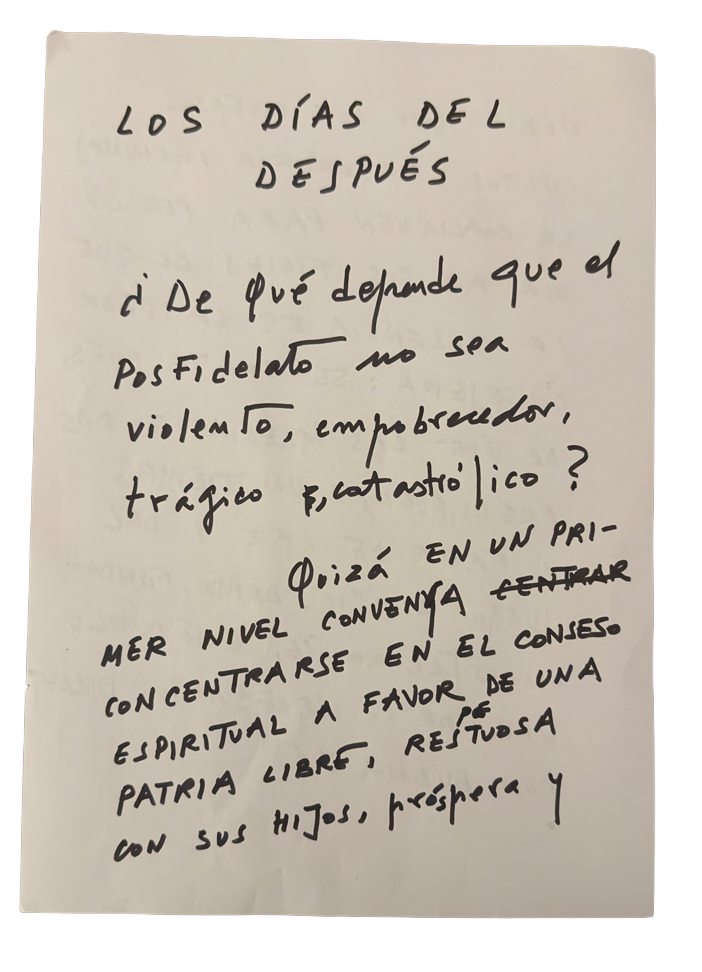 LOS DÍAS DEL
DESPUÉS
¿De Qué depende que el
PosFidelato no sea
violento, empobrecedor,
trágico, catastrólico?
Quizá EN UN PRI-
MER NIVEL CONVENGA CENTRAR
CONCENTRARSE EN EL CONSESO
ESPIRITUAL A FAVOR DE UNA
PATRIA LIBRE, RESPETUOSA
CON SUS HIJOS, próspera y